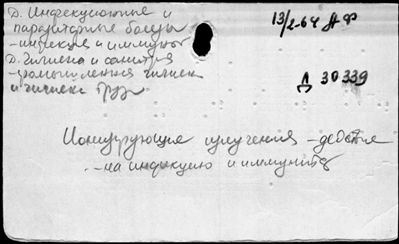 Д. Инфекционные и
паразитарные болезн
- инфекция и иммунит
Д. Гигиена и санитария
- промышленная гигиен
и гигиена труд
13/2-64
Д 30339
Ионизирующие излучения - действие
- на инфекцию и иммунитет